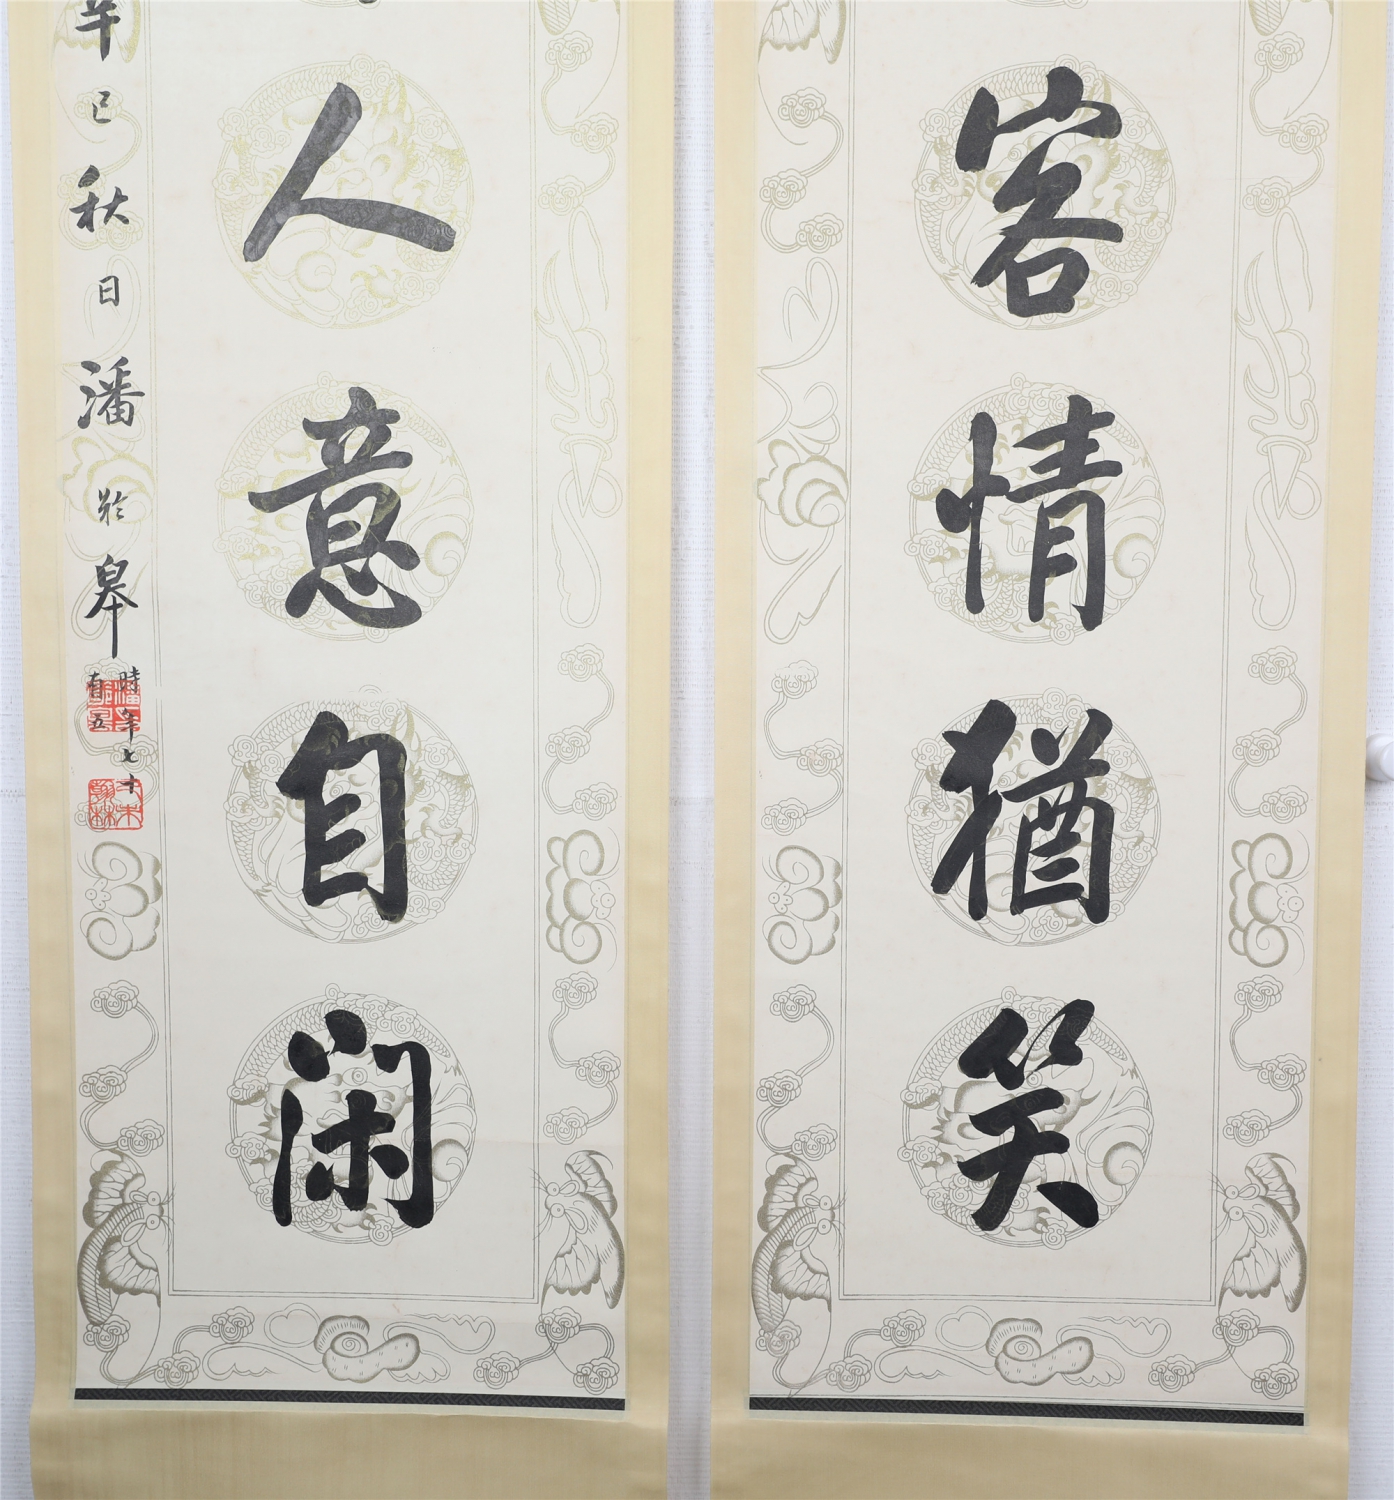 客情猶笑
人意自閑
辛巳秋日潘齡皋
時年七十
有五